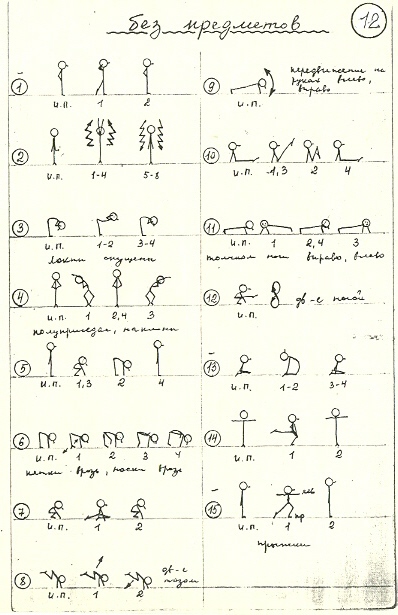 без предметов
12
1
и.п. 1 2
2
и.п. 1-4 5-8
3
и.п. 1-2 3-4
локти опущены
4
и.п. 1 2,4 3
полуприседая, наклоны
5
и.п. 1,3 2 4
6
и.п. 1 2 3 4
пятки врозь, носки врозь
7
и.п. 1 2
8
и.п. 1 2
дв-е
тазом
9
и.п.
передвижение на
руках влево,
вправо
10
и.п. 1,3 2 4
11
и.п. 1 2,4 3
толчком ног вправо, влево
12
и.п.
дв-е ногой
13
и.п. 1-2 3-4
14
и.п. 1 2
15
и.п. 1 2
лев
пр
прыжки